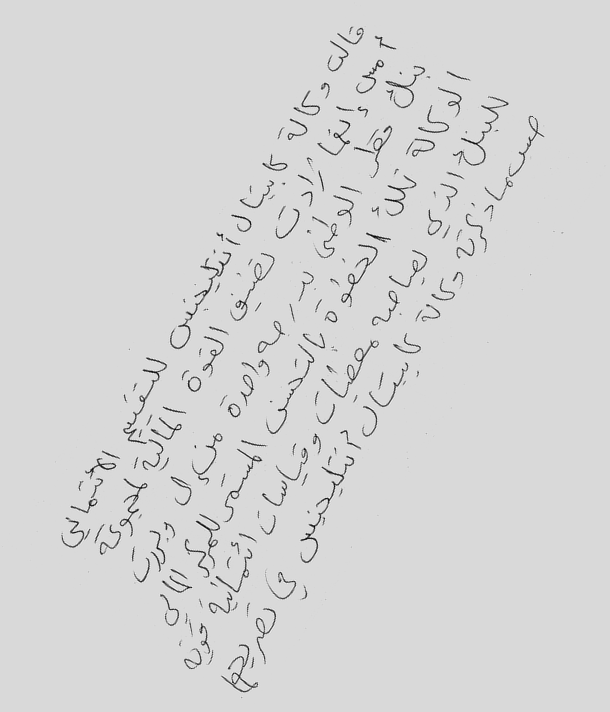 قالت وكالة كابيتال أنتليجنيس للتقييم الائتماني
أمس أنها زادت تصنيف القوة المالية لمجموعة
بنك قطر الوطني بدرجة واحدة من وبررت
الوكالة تلك الخطوة بالتحسن المستمر للمركز المالي
للبنك الذي يصاحبه معطيات وقياسات ائتمانية قوية
حسب ما ذكرته وكالة كابيتال أنتليجنيس في تصريحها